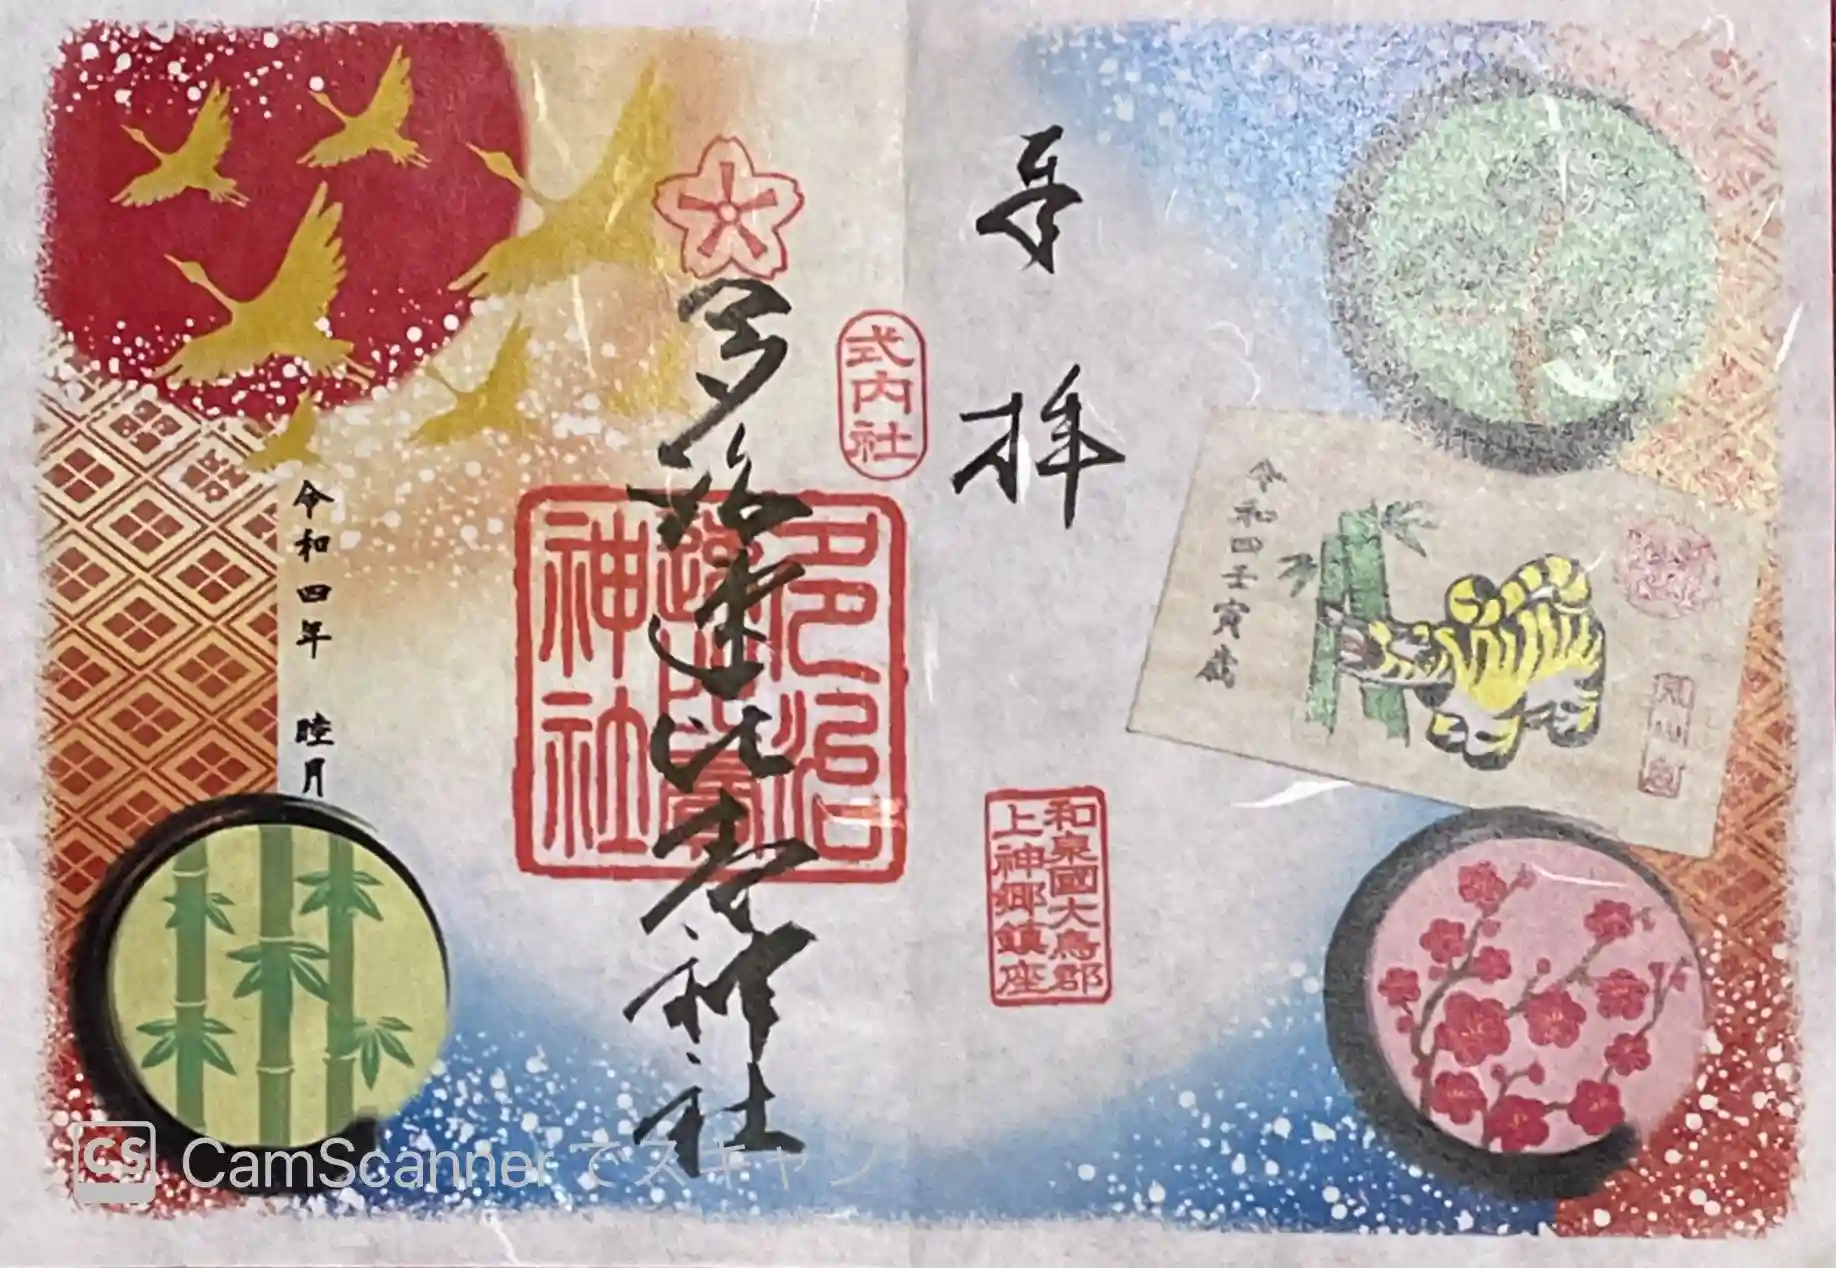 奉拝
令和四壬寅歳
和泉國大鳥郡
上神郷鎮座
式内社
多治速比売神社
多治
速比賣
神社
令和四年 睦月
CS CamScanner でスキャン